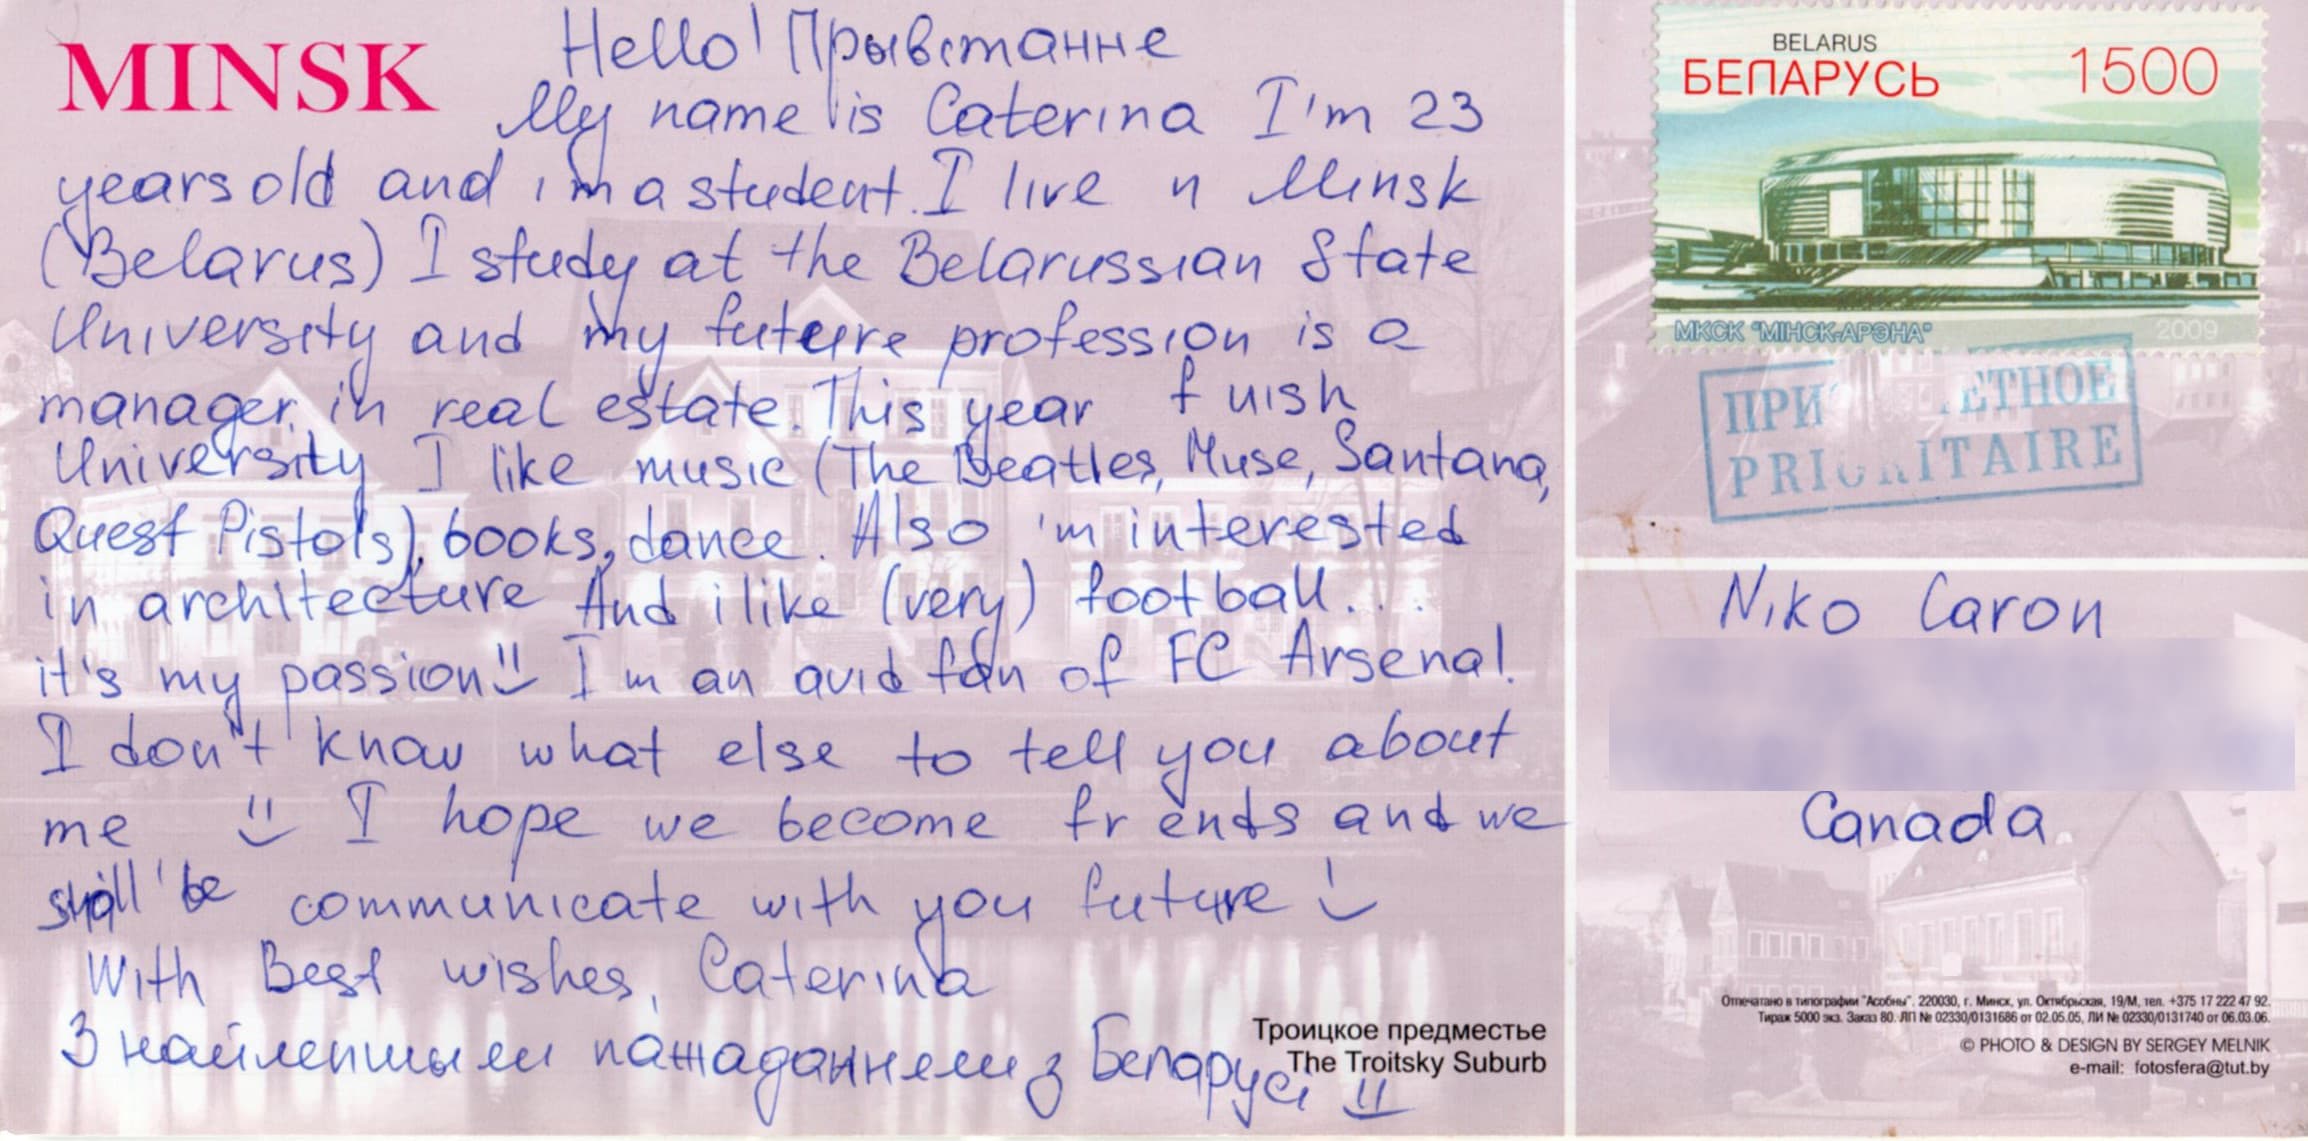 MINSK
Hello! Прывітанне
My name is Caterina I'm 23
years old and i'm a student. I live in Minsk
(Belarus) I study at the Belarussian State
University and my future profession is a
manager in real estate. This year finish
University I like music (The Beatles, Muse, Santana,
Quest Pistols), books, dance. Also 'm interested
in architecture And i like (very) football...
it's my passion!! I'm an avid fan of FC Arsenal.
I don't know what else to tell you about
me I hope we become friends and we
shall be communicate with you future!
With Best wishes, Caterina
З найлепшымі пажаданнем з Беларусі
Троицкое предместье
The Troitsky Suburb
BELARUS
БЕЛАРУСЬ 1500
МКСК "МІНСК-АРЭНА" 2009
ПРИ ЕТНОЕ
PRIORITAIRE
Niko Caron
Canada
Отпечатано в типографии "Асобны". 220030, г. Минск, ул. Октябрьская, 19/М, тел. +375 17 222 47 92.
Тираж 5000 экз. Заказ 80. ЛП № 02330/0131686 от 02.05.05, ЛИ № 02330/0131740 от 06.03.06.
© PHOTO & DESIGN BY SERGEY MELNIK
e-mail: fotosfera@tut.by